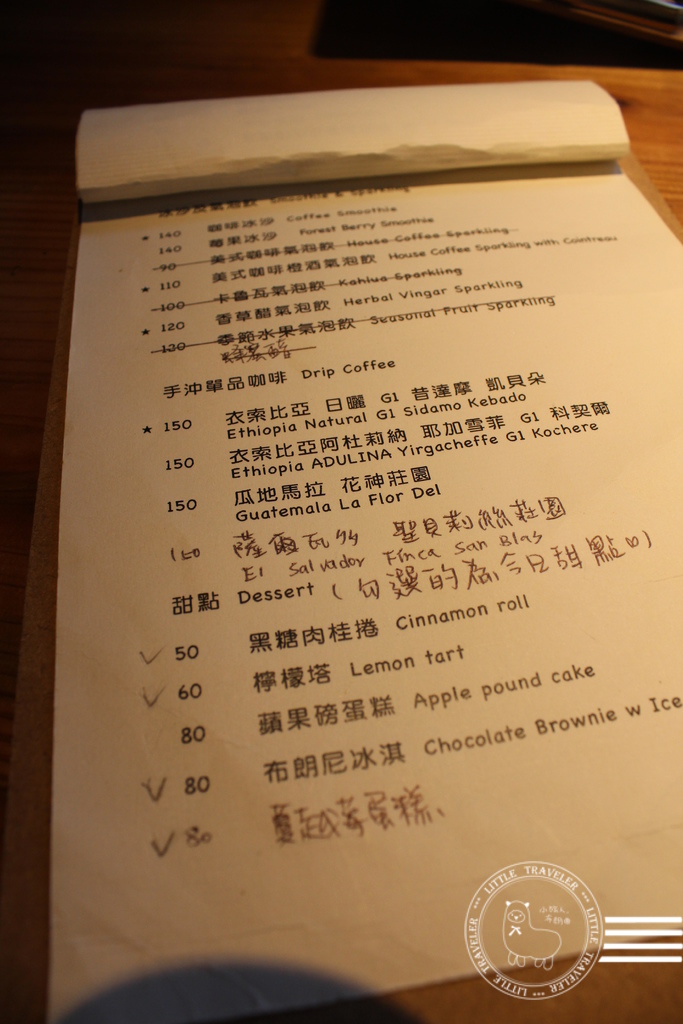 冰沙及氣泡飲 Smoothie & Sparkling
★ 140 咖啡冰沙 Coffee Smoothie
140 莓果冰沙 Forest Berry Smoothie
90 美式咖啡氣泡飲 House Coffee Sparkling
★ 110 美式咖啡橙酒氣泡飲 House Coffee Sparkling with Cointreau
100 卡魯瓦氣泡飲 Kahlua Sparkling
★ 120 香草醋氣泡飲 Herbal Vingar Sparkling
130 季節水果氣泡飲 Seasonal Fruit Sparkling
手沖單品咖啡 Drip Coffee
★ 150 衣索比亞 日曬 G1 昔達摩 凱貝朵
Ethiopia Natural G1 Sidamo Kebado
150 衣索比亞阿杜莉納 耶加雪菲 G1 科契爾
Ethiopia ADULINA Yirgacheffe G1 Kochere
150 瓜地馬拉 花神莊園
Guatemala La Flor Del
150 薩爾瓦多 聖貝莉絲莊園
El Salvador Finca San Blas
甜點 Dessert (勾選的為今日甜點口)
✓ 50 黑糖肉桂捲 Cinnamon roll
✓ 60 檸檬塔 Lemon tart
80 蘋果磅蛋糕 Apple pound cake
✓ 80 布朗尼冰淇 Chocolate Brownie w Ice
✓ 80 蔓越莓蛋糕、
LITTLE TRAVELER ... LITTLE TRAVELER ... LITTLE TRAVELER
小旅人